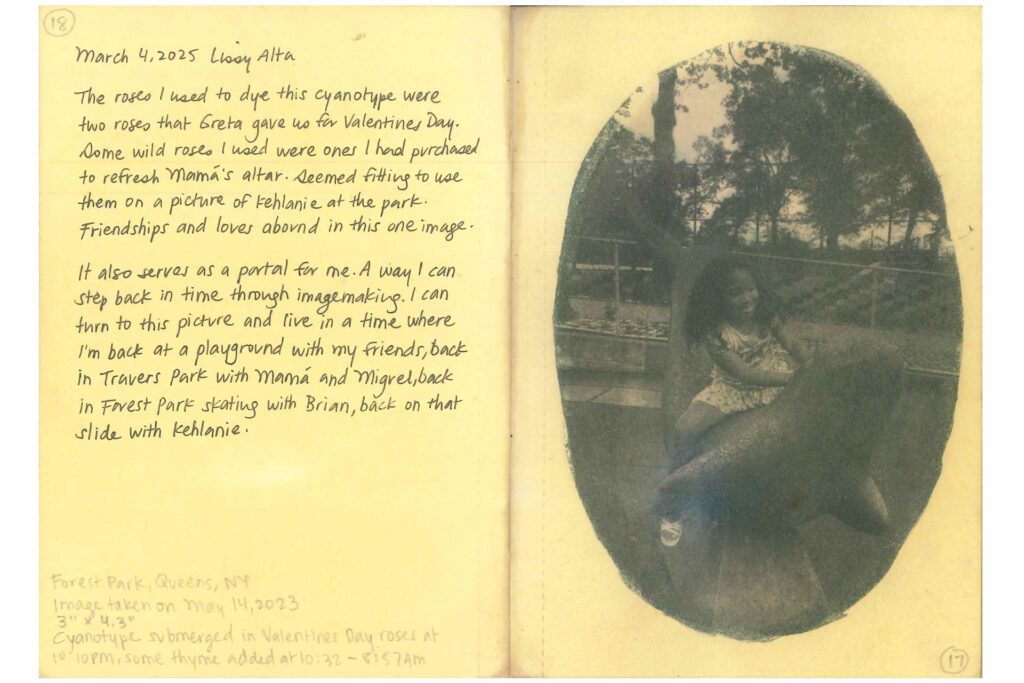 18
March 4, 2025 Lissy Alta
The roses I used to dye this cyanotype were
two roses that Greta gave us for Valentines Day.
Some wild roses I used were ones I had purchased
to refresh Mamá's altar. Seemed fitting to use
them on a picture of Kehlanie at the park.
Friendships and loves abound in this one image.
It also serves as a portal for me. A way I can
step back in time through imagemaking. I can
turn to this picture and live in a time where
I'm back at a playground with my friends, back
in Travers Park with Mamá and Miguel, back
in Forest Park skating with Brian, back on that
slide with Kehlanie.
Forest Park, Queens, NY
Image taken on May 14, 2023
3" x 4.3"
Cyanotype submerged in Valentines Day roses at
10:10PM, some thyme added at 10:32 - 8:57AM
17